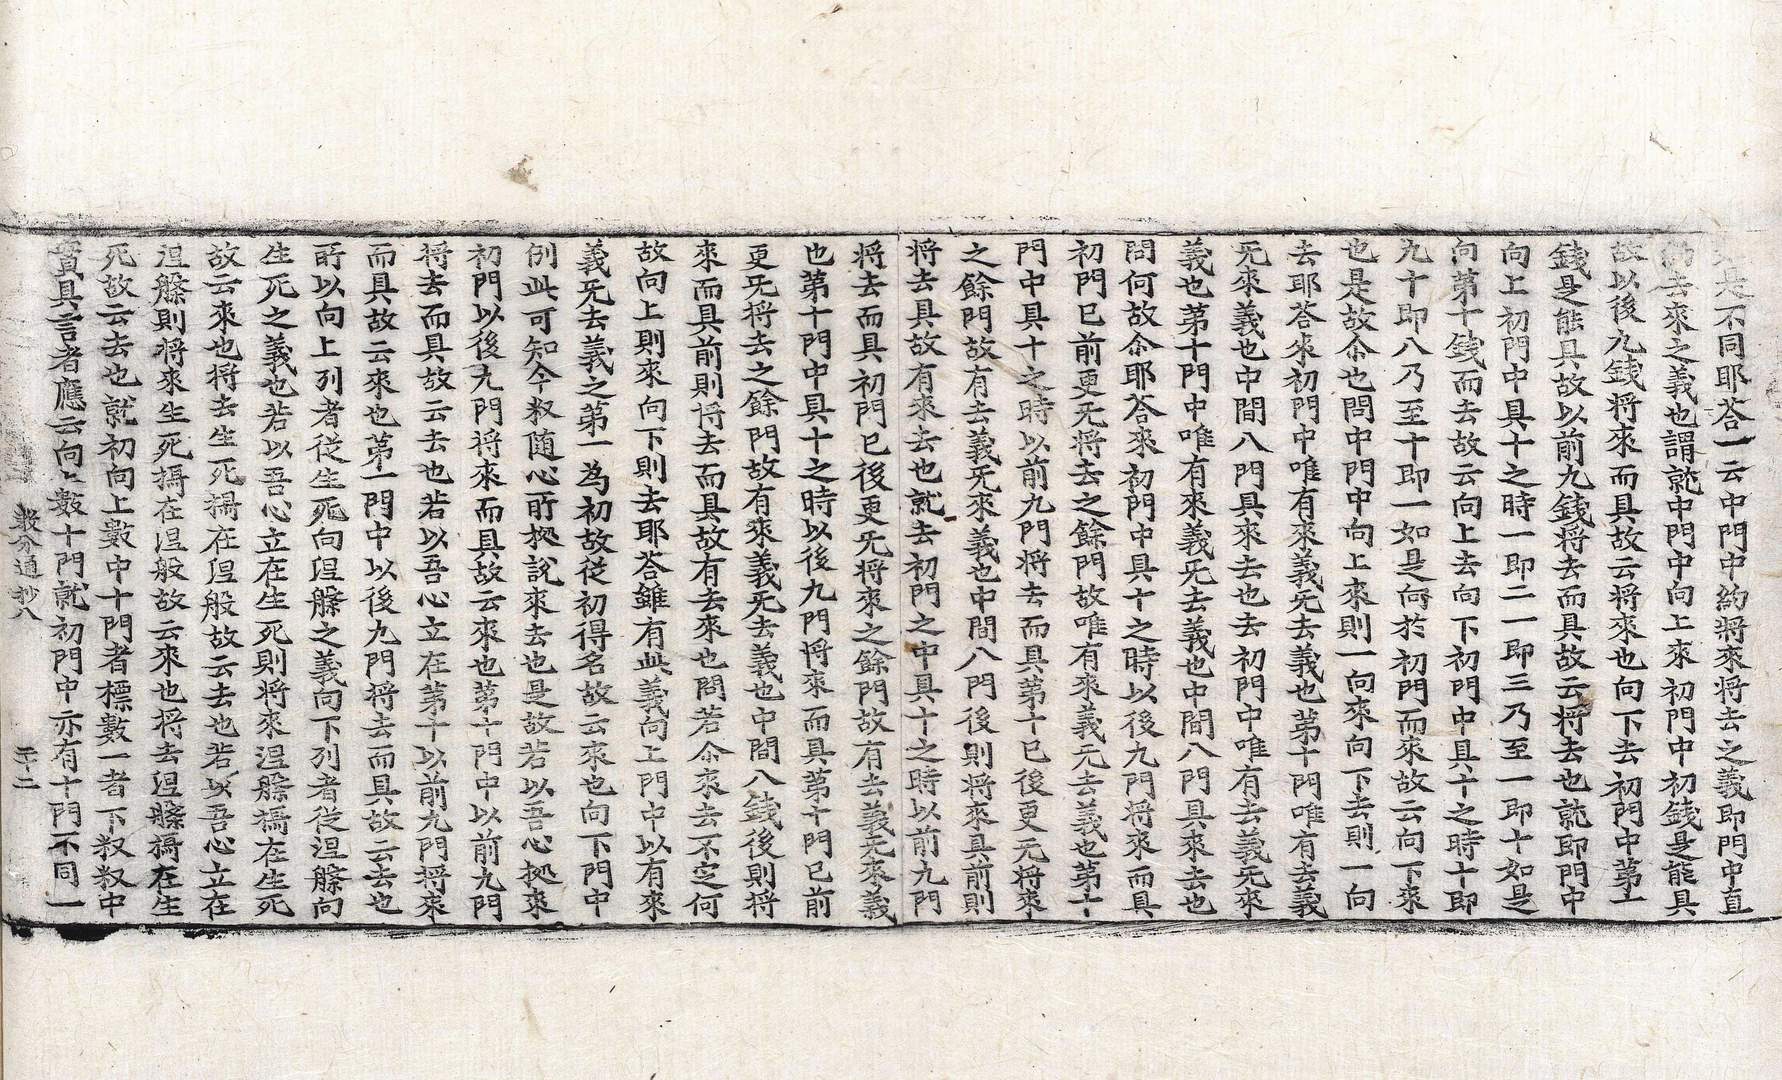 是不同耶荅一云中門中約將來將去之義即門中直
約去來之義也謂就中門中向上來初門中初錢是能具
故以後九錢將來而具故云將來也向下去初門中第十
錢是能具故以前九錢將去而具故云將去也就即門中
向上初門中具十之時一即二一即三乃至一即十如是
向第十錢而去故云向上去向下初門中具十之時十即
九十即八乃至十即一如是向於初門而來故云向下來
也是故尒也問中門中向上來則一向來向下去則一向
去耶荅來初門中唯有來義旡去義也第十門唯有去義
旡來義也中間八門具來去也去初門中唯有去義旡來
義也第十門中唯有來義旡去義也中間八門具來去也
問何故尒耶荅來初門中具十之時以後九門將來而具
初門已前更旡將去之餘門故唯有來義旡去義也第十
門中具十之時以前九門將去而具第十已後更旡將來
之餘門故有去義旡來義也中間八門後則將來具前則
將去具故有來去也就去初門之中具十之時以前九門
將去而具初門已後更旡將來之餘門故有去義旡來義
也第十門中具十之時以後九門將來而具第十門已前
更旡將去之餘門故有來義旡去義也中間八錢後則將
來而具前則將去而具故有去來也問若尒來去不定何
故向上則來向下則去耶荅雖有此義向上門中以有來
義旡去義之第一為初故從初得名故云來也向下門中
例此可知今釈随心所㩀說來去也是故若以吾心㩀來
初門以後九門將來而具故云來也第十門中以前九門
將去而具故云去也若以吾心立在第十以前九門將來
而具故云來也第一門中以後九門將去而具故云去也
所以向上列者從生死向涅槃之義向下列者從涅槃向
生死之義也若以吾心立在生死則將來涅槃攝在生死
故云來也將去生死攝在涅般故云去也若以吾心立在
涅槃則將來生死攝在涅般故云來也將去涅槃攝在生
死故云去也就初向上數中十門者標數一者下釈釈中
實具言者應云向上數十門就初門中亦有十門不同一
敎分通抄八
二十二